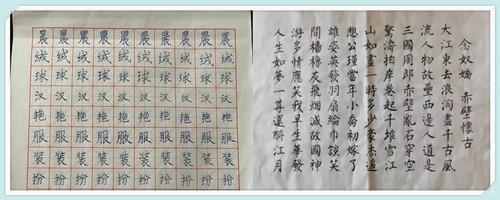 晨晨晨晨晨晨晨晨晨晨
绒绒绒绒绒绒绒绒绒绒
球球球球球球球球球球
汉汉汉汉汉汉汉汉汉汉
艳艳艳艳艳艳艳艳艳艳
服服服服服服服服服服
装装装装装装装装装装
扮扮扮扮扮扮扮扮扮扮
念奴嬌 赤壁懷古
大江東去浪淘盡千古風
流人物故壘西邊人道是
三國周郎赤壁亂石穿空
驚濤拍岸卷起千堆雪江
山如畫一時多少豪杰遙
想公瑾當年小喬初嫁了
雄姿英發羽扇綸巾談笑
間檣櫓灰飛烟滅故國神
游多情應笑我早生華發
人生如夢一尊還酹江月